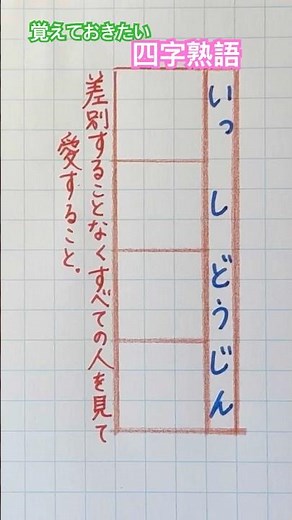 覚えておきたい
四字熟語
いっしどうじん
差別することなくすべての人を見て
愛すること。